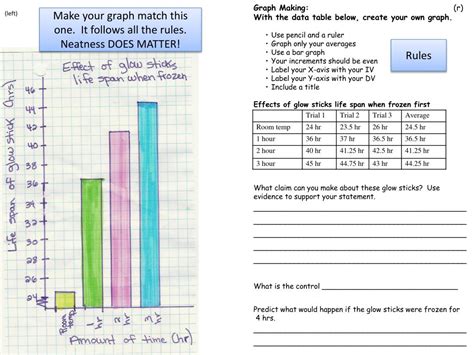 (left)
Make your graph match this
one. It follows all the rules.
Neatness DOES MATTER!
Effect of glow sticks
life span when frozen
Life span of glow stick (hrs)
46
44
42
40
38
36
34
32
30
28
26
24
Room temp
1 hr
2 hr
3 hr
Amount of time (hr)
Graph Making:
(r)
With the data table below, create your own graph.
• Use pencil and a ruler
• Graph only your averages
• Use a bar graph
• Your increments should be even
• Label your X-axis with your IV
• Label your Y-axis with your DV
• Include a title
Rules
Effects of glow sticks life span when frozen first
Trial 1 Trial 2 Trial 3 Average
Room temp 24 hr 23.5 hr 26 hr 24.5 hr
1 hour 36 hr 37 hr 36.5 hr 36.5 hr
2 hour 40 hr 41.25 hr 42.5 hr 41.25 hr
3 hour 45 hr 44.75 hr 43 hr 44.25 hr
What claim can you make about these glow sticks? Use
evidence to support your statement.
What is the control
Predict what would happen if the glow sticks were frozen for
4 hrs.